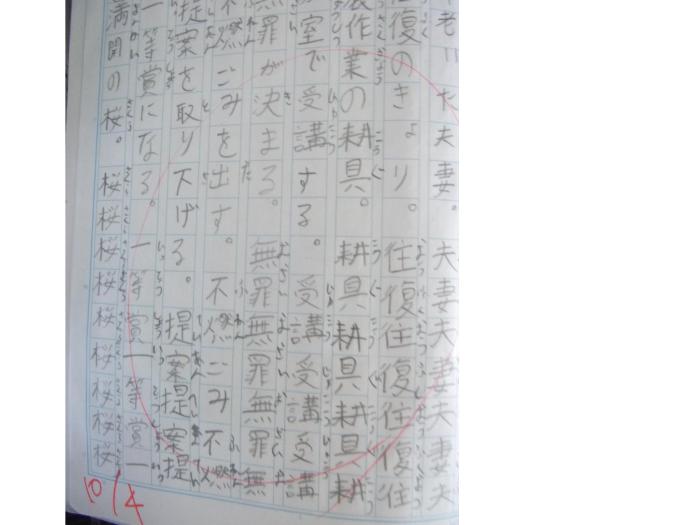 老いた夫妻。夫妻夫妻夫妻夫
往復のきょり。往復往復往復往
製作業の耕具。耕具耕具耕具耕
室で受講する。受講受講受講
無罪が決まる。無罪無罪無罪無
不燃ごみを出す。不燃ごみ不燃
提案を取り下げる。提案提案提
一等賞になる。一等賞一等賞一
満開の桜。桜桜桜桜桜桜桜桜
10/4